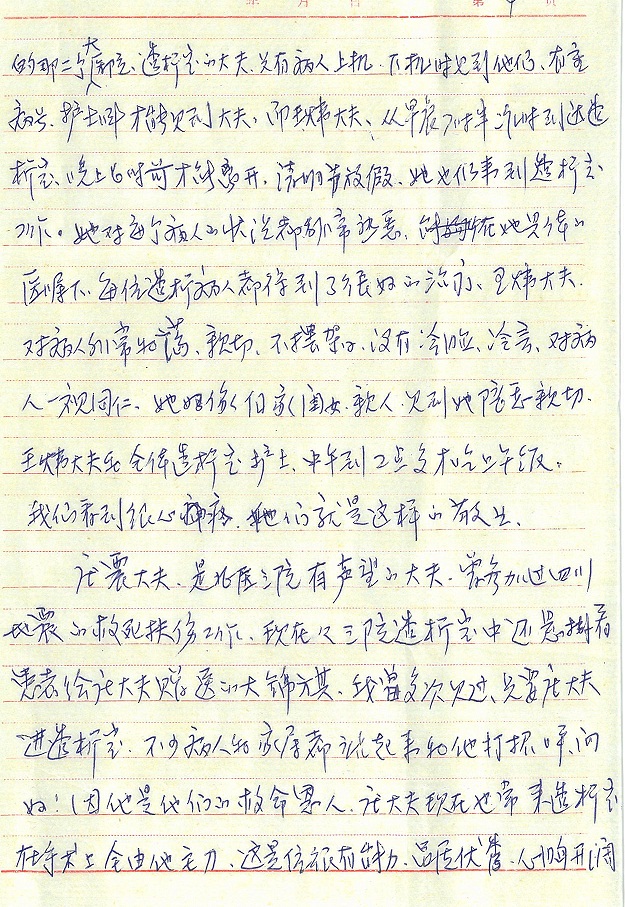 年 月 日 第 9 页
的那一个大都是、透析室的大夫、只有病人上机、下机时见到他们、有重
病号、护士叫才能见到大夫、而王炜大夫、从早晨7时半准时到达透
析室、晚上6时前才能离开、清明节放假、她也仍来到透析室
工作。她对每个病人的状况都非常熟悉、在她具体的
医嘱下、每位透析病人都得到了很好的治疗、王炜大夫、
对病人非常和蔼、亲切、不摆架子、没有冷脸、冷言、对病
人一视同仁、她好像人们家人闺女、亲人、见到她倍感亲切、
王炜大夫和全体透析室护士、中午到2点多才给口午饭。
我们看到很心疼、她们就是这样的敬业、
庄震大夫、是北医三院有声望的大夫、曾参加过四川
地震的救死扶伤工作、现在区三院透析室中还悬掛着
患者给庄大夫赠送的大锦旗、我曾多次见过、只要庄大夫
进透析室、不少病人和家属都站起来和他打招呼、问
好！（因他是他们的救命恩人、庄大夫现在也常来透析室
在手术上全由他主刀、这是位很有魄力、品质优秀、心胸开阔